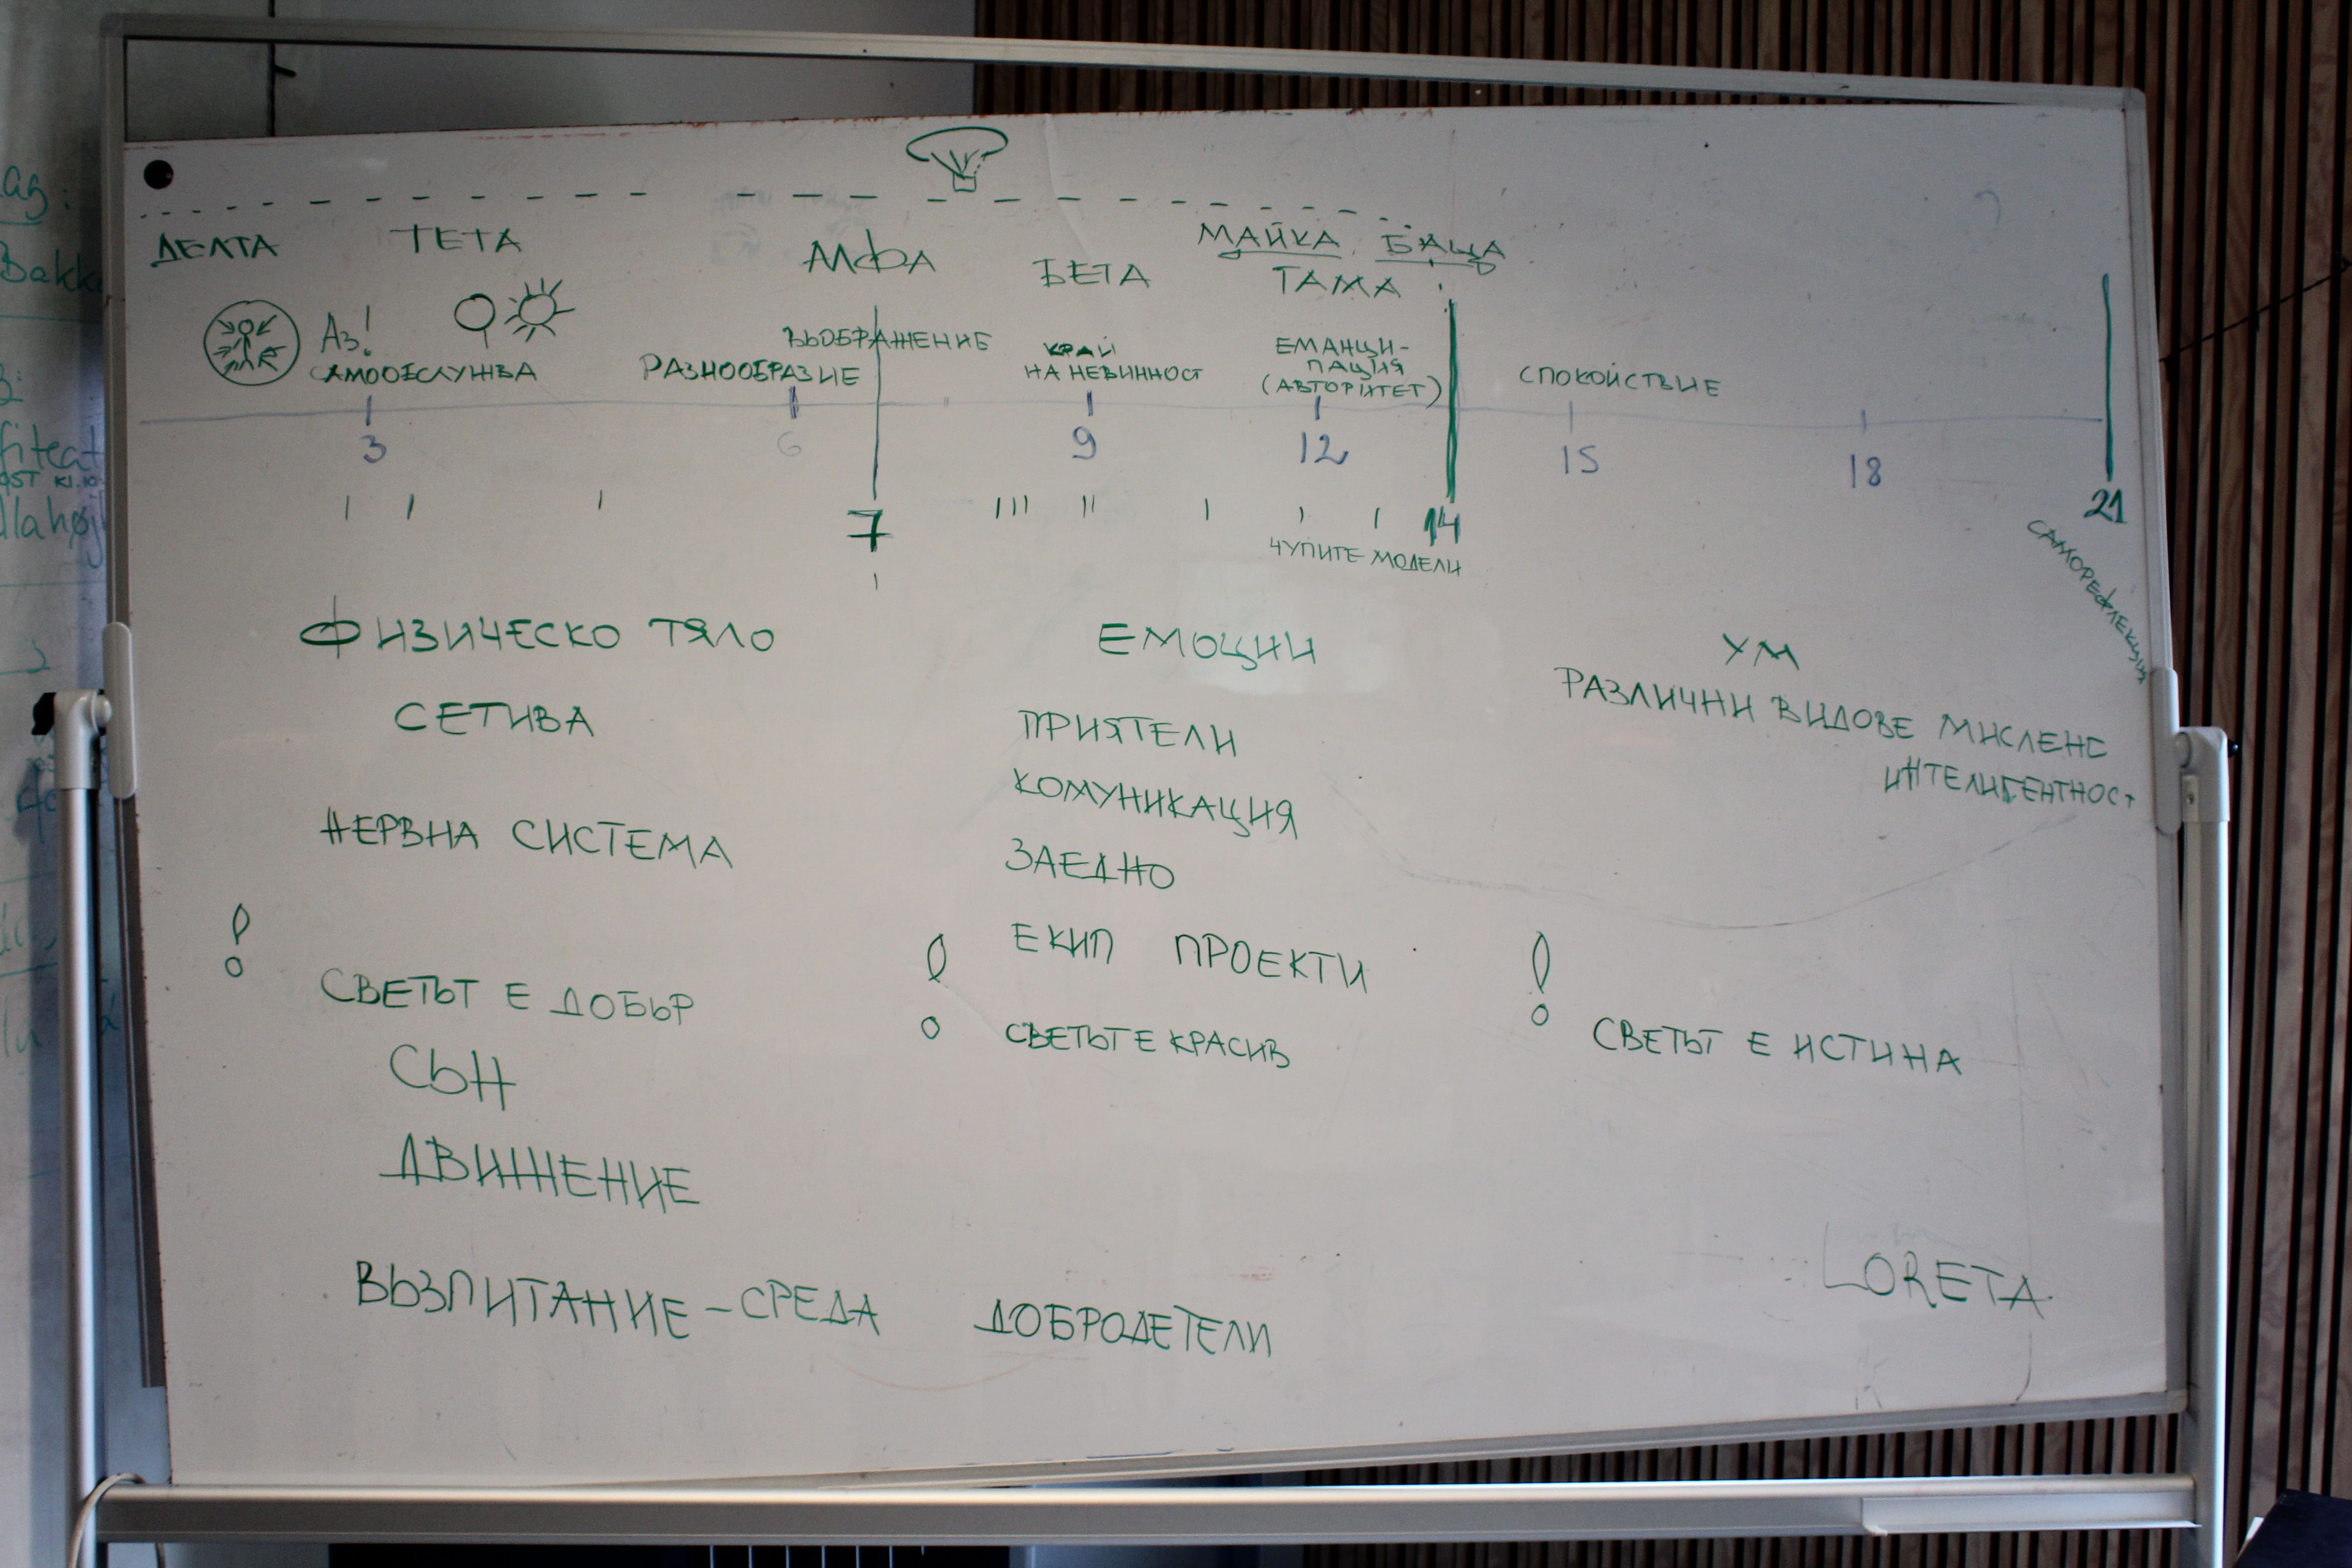 ДЕЛТА ТЕТА АЛФА БЕТА МАЙКА БАЩА
ГАМА
Аз!
САМООБСЛУЖВА
РАЗНООБРАЗИЕ
ВЪОБРАЖЕНИЕ
КРАЙ
НА НЕВИННОСТ
ЕМАНЦИ-
ПАЦИЯ
(АВТОРИТЕТ)
СПОКОЙСТВИЕ
3 6 9 12 15 18
7 14 21
ЧУПИТЕ МОДЕЛИ
САМОРЕФЛЕКЦИЯ
ФИЗИЧЕСКО ТЯЛО
СЕТИВА
НЕРВНА СИСТЕМА
! СВЕТЪТ Е ДОБЪР
СЪН
ДВИЖЕНИЕ
ЕМОЦИИ
ПРИЯТЕЛИ
КОМУНИКАЦИЯ
ЗАЕДНО
ЕКИП ПРОЕКТИ
! СВЕТЪТ Е КРАСИВ
УМ
РАЗЛИЧНИ ВИДОВЕ МИСЛЕНЕ
ИНТЕЛИГЕНТНОСТ
! СВЕТЪТ Е ИСТИНА
ВЪЗПИТАНИЕ – СРЕДА ДОБРОДЕТЕЛИ
LORETA